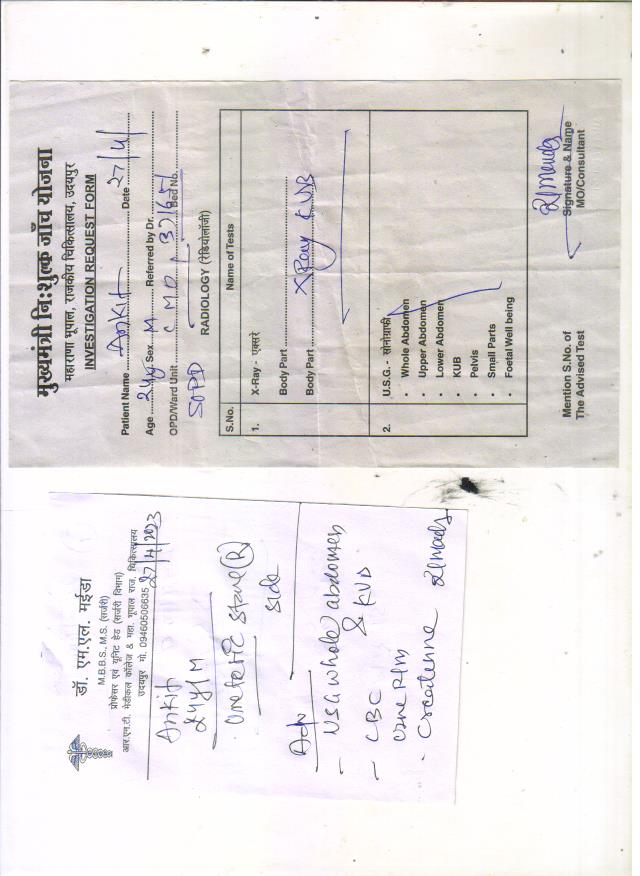 मुख्यमंत्री निःशुल्क जाँच योजना
महाराणा भूपाल, राजकीय चिकित्सालय, उदयपुर
INVESTIGATION REQUEST FORM
Patient Name Ankit Date 27/4/
Age 24y Sex M Referred by Dr.
OPD/Ward Unit CMD Bed No.
SOPD
RADIOLOGY (रेडियोलॉजी)
S.No. Name of Tests
1. X-Ray - एक्सरे
Body Part
Body Part X Ray KUB
2. U.S.G. - सोनोग्राफी
• Whole Abdomen
• Upper Abdomen
• Lower Abdomen
• KUB
• Pelvis
• Small Parts
• Foetal Well being
Mention S.No. of
The Advised Test
Signature & Name
MO/Consultant
डॉ. एम.एल. मईडा
M.B.B.S., M.S. (सर्जरी)
प्रोफेसर एवं यूनिट हेड (सर्जरी विभाग)
आर.एन.टी. मेडीकल कॉलेज & महा. भूपाल राज. चिकित्सालय
उदयपुर मो. 09460506635
27/4/2023
Ankit
24y/M
ureteric stone (R)
side
Adv
- USG whole abdomen
& KUB
- CBC